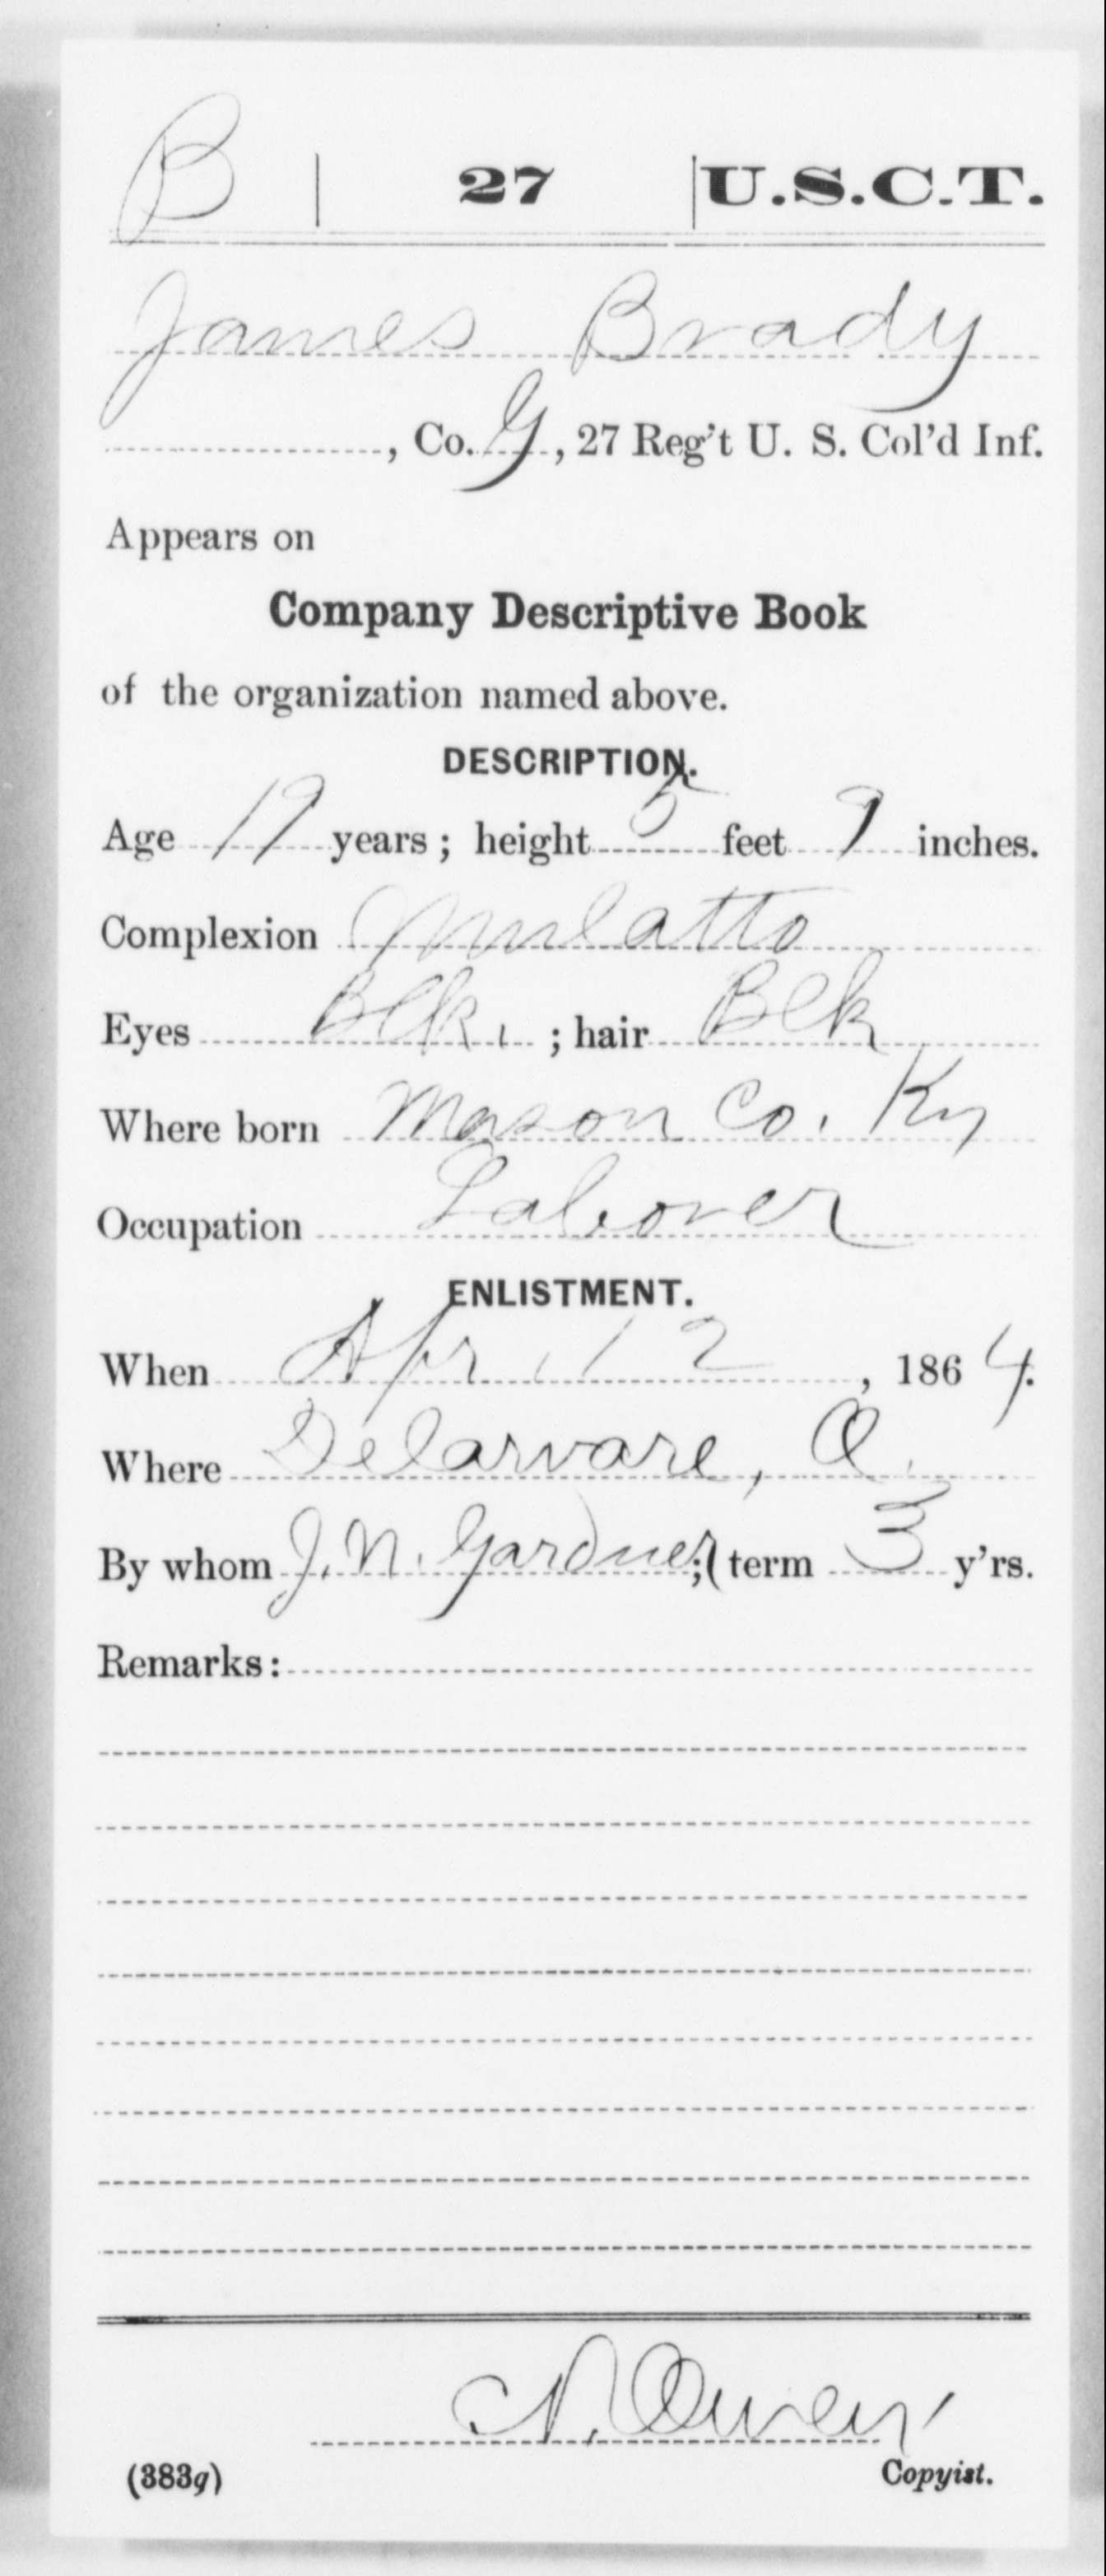 B | 27 | U.S.C.T.
James Brady
, Co. G, 27 Reg't U. S. Col'd Inf.
Appears on
Company Descriptive Book
of the organization named above.
DESCRIPTION.
Age 19 years; height 5 feet 9 inches.
Complexion Mulatto
Eyes Blk. ; hair Blk
Where born Mason Co. Ky
Occupation Laborer
ENLISTMENT.
When Apr. 12, 1864.
Where Delaware, O.
By whom J. N. Gardner; term 3 y'rs.
Remarks:
N. Owen
(383g) Copyist.